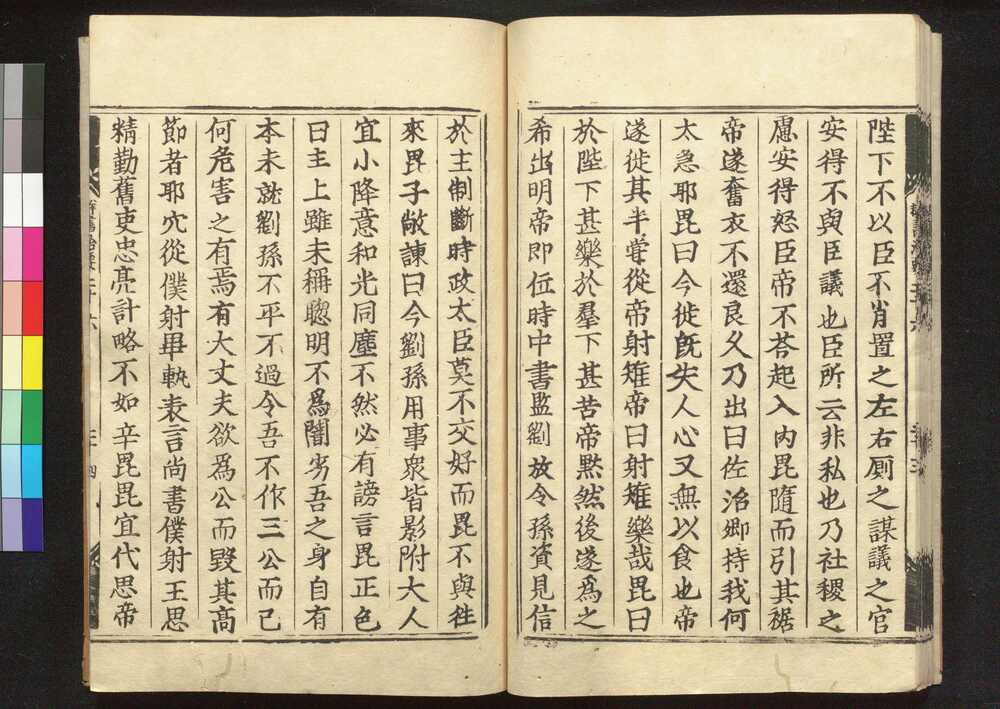 陛下不以臣不肖置之左右厠之謀議之官
安得不與臣議也臣所云非私也乃社稷之
慮安得怒臣帝不荅起入內毘隨而引其裾
帝遂奮衣不還良久乃出曰佐治卿持我何
太急耶毘曰今徙旣失人心又無以食也帝
遂徙其半嘗從帝射雉帝曰射雉樂哉毘曰
於陛下甚樂於羣下甚苦帝默然後遂爲之
希出明帝即位時中書監劉放令孫資見信
於主制斷時政大臣莫不交好而毘不與往
來毘子敞諫曰今劉孫用事衆皆影附大人
宜小降意和光同塵不然必有謗言毘正色
曰主上雖未稱聦明不爲闇劣吾之身自有
本末就劉孫不平不過令吾不作三公而已
何危害之有焉有大丈夫欲爲公而毀其高
節者耶宂從僕射畢軌表言尚書僕射王思
精勤舊吏忠亮計略不如辛毘毘宜代思帝